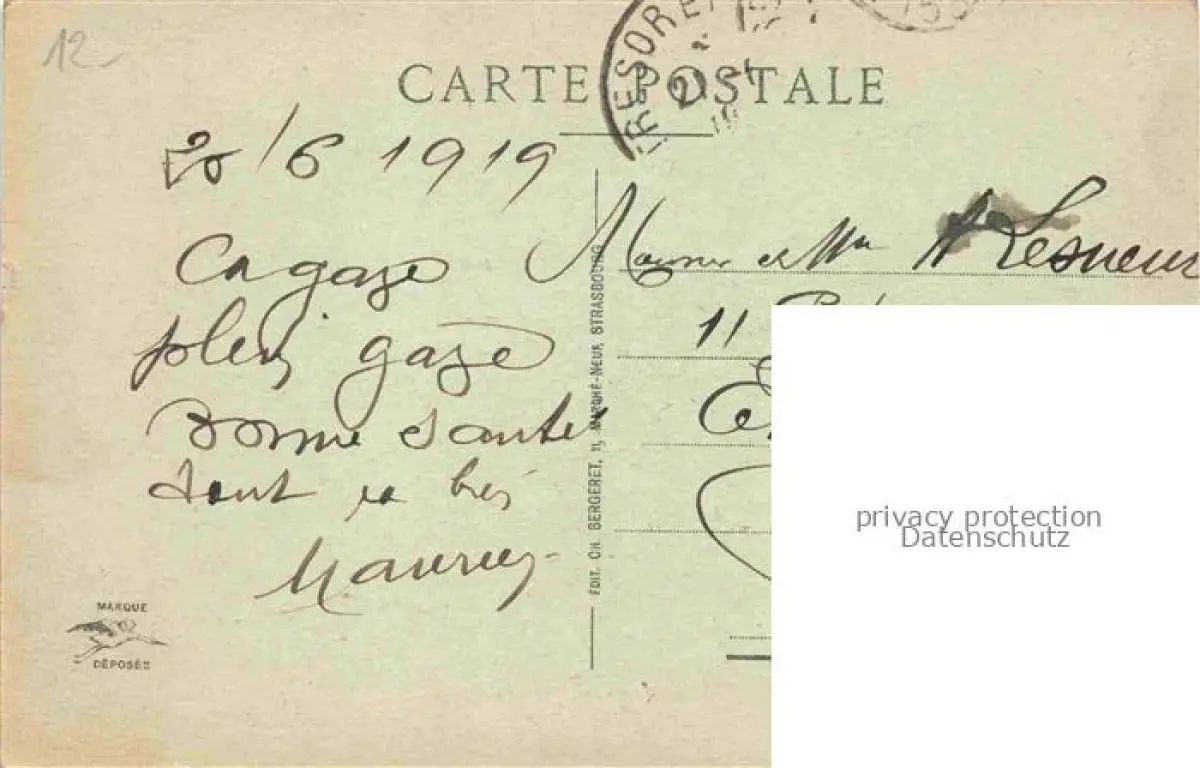 12
CARTE POSTALE
TRESOR ET
20/6 1919
Ca gaze
plein gaze
Bonne santé
Tout va bien
Maurice
Monsieur et Mme A Lesueur
11
ÉDIT. CH. BERGERET, 11, MARCHÉ-NEUF, STRASBOURG
MARQUE
DÉPOSÉE
privacy protection
Datenschutz